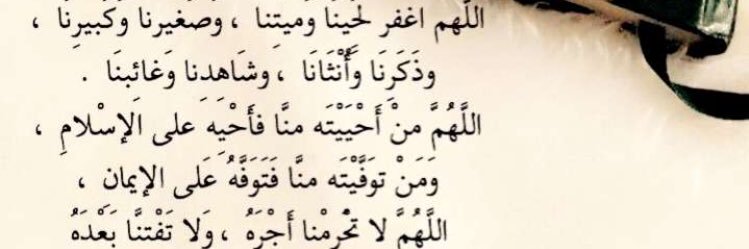 اللَّهم اغفر لحَينَا وَميتِنا ، وَصَغيرنا وَكَبيرِنَا ،
وذَكَرِنَا وَأُنْثَانَا ، وشَاهدِنا وَغائبنَا .
اللَّهُمَّ منْ أَحْيَيْتَه منَّا فأَحْيِهِ على الإسْلامِ ،
وَمَنْ توَفَّيْتَه منَّا فَتَوَفَّهُ عَلى الإيمانِ ،
اللَّهُمَّ لا تَحْرِمْنا أَجْرَهُ ، وَلا تَفْتنَّا بَعْدَهُ